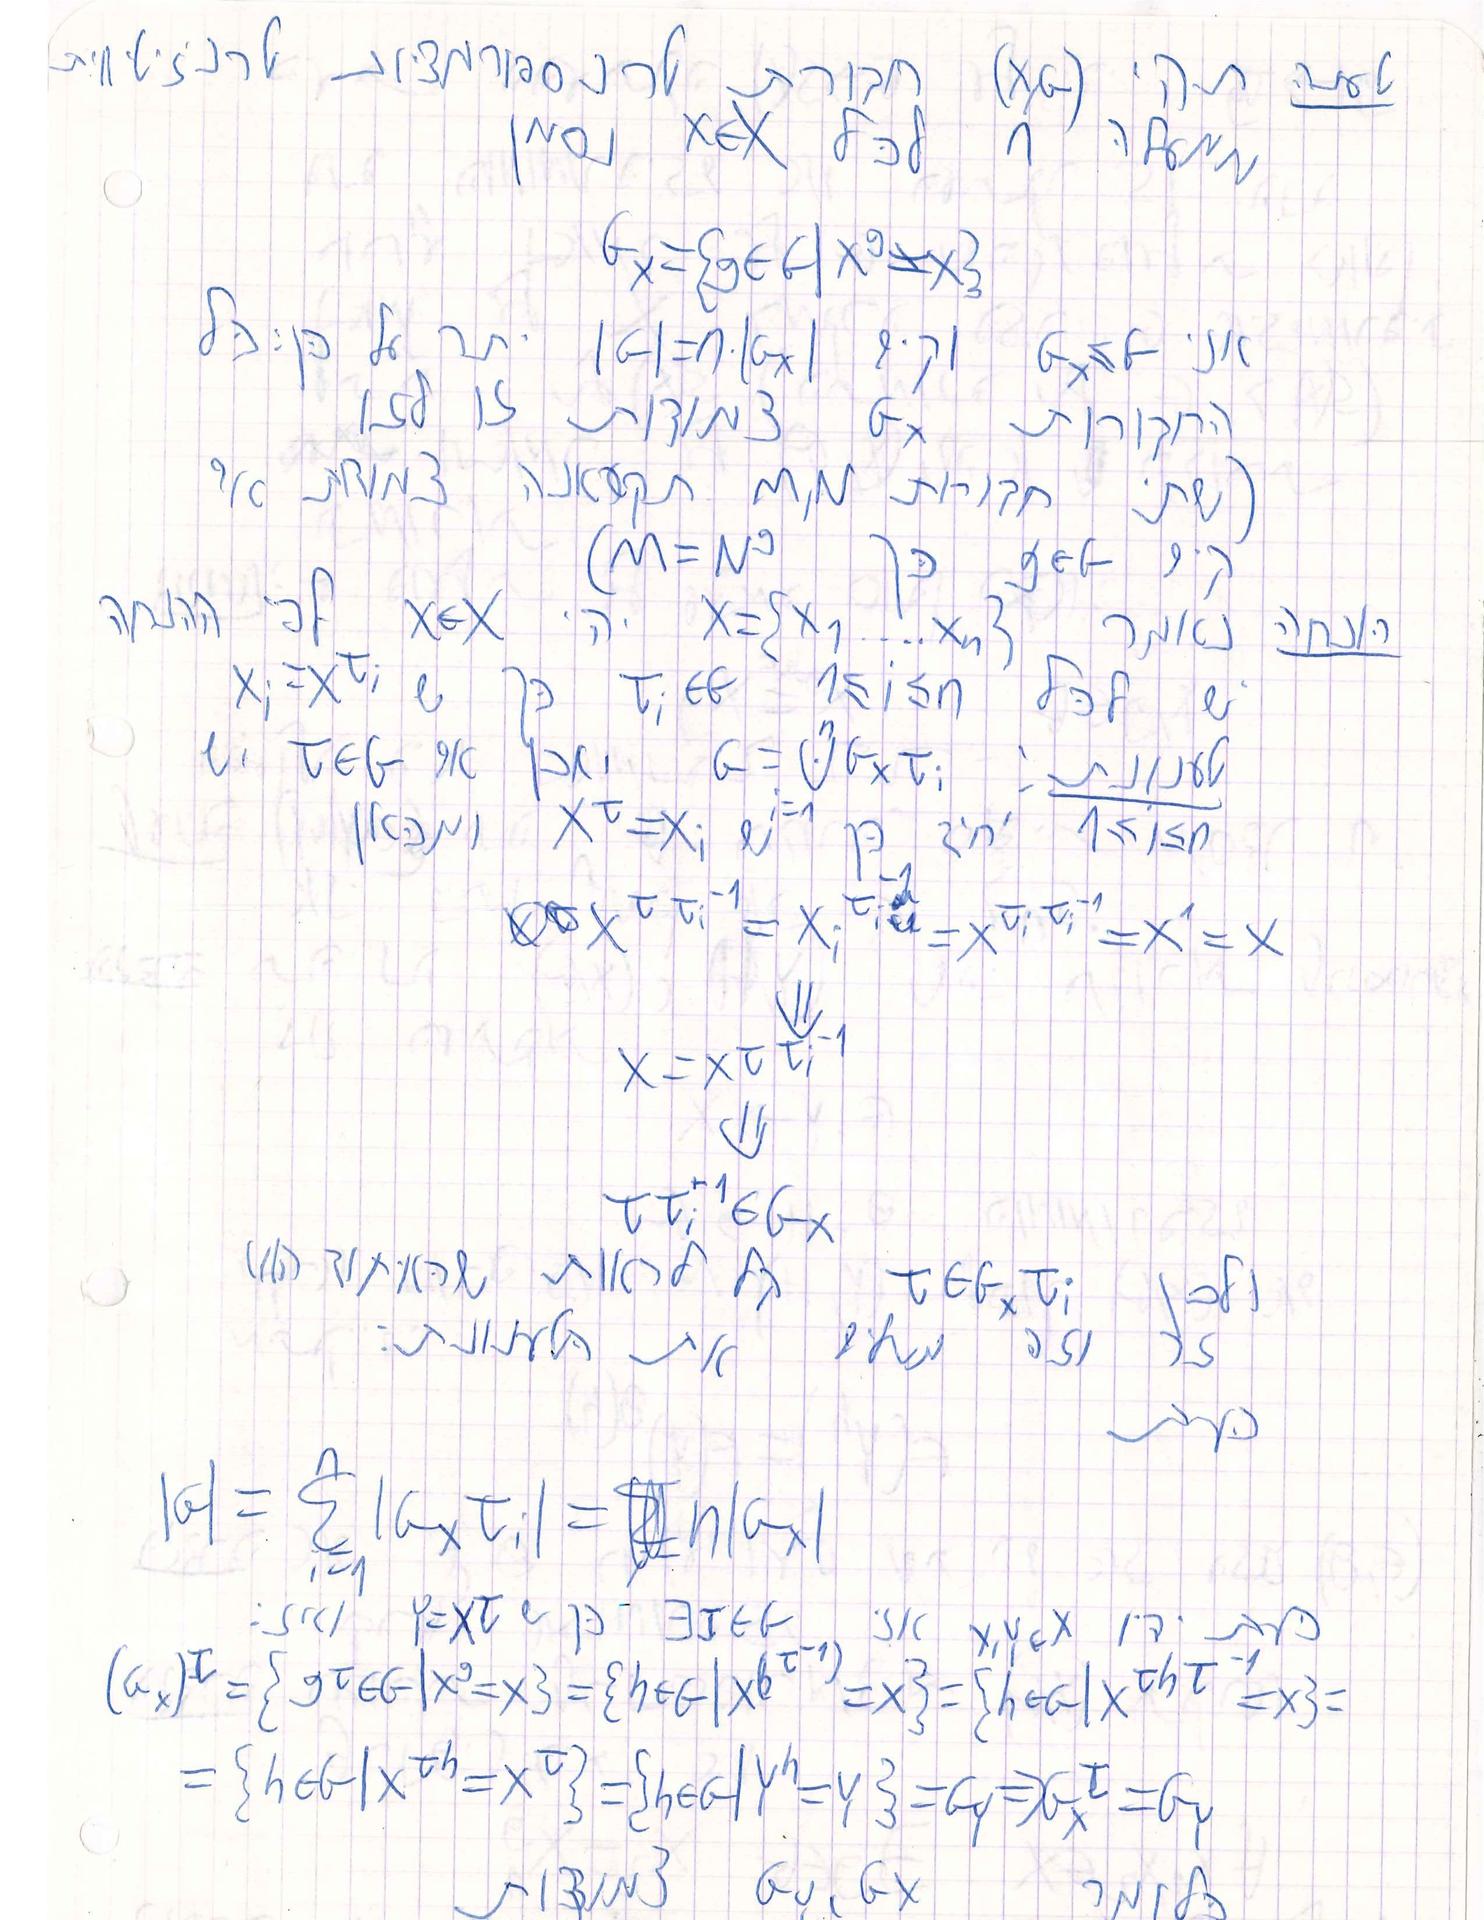 טענה תהי (X,G) חבורת טרנספורמציות טרנזיטיבית
ממעלה n לכל x∈X נסמן
G_x={g∈G|x^g=x}
אזי G_x≤G וקיים |G|=n·|G_x| יתר על כן: כל
החבורות G_x צמודות זו לזו
(שתי חבורות M,N תקראנה צמודות אם
קיים g∈G כך M=N^g)
הוכחה נאמר X={x_1....x_n} יהי x∈X לפי ההנחה
יש לכל 1≤i≤n τ_i∈G כך ש x_i=x^{τ_i}
טענונת: G=⋃_{i=1}^n G_x τ_i ואכן אם τ∈G יש
1≤i≤n יחיד כך ש x^τ=x_i ומכאן
x^{ττ_i^{-1}}=x_i^{τ_i^{-1}}=x^{τ_iτ_i^{-1}}=x^1=x
⇓
x=x^{ττ_i^{-1}}
⇓
ττ_i^{-1}∈G_x
ולכן τ∈G_xτ_i קל לראות שהאיחוד הוא
זר וזה משלים את הטענונת:
כעת
|G|=∑_{i=1}^n|G_xτ_i|=n|G_x|
כעת יהיו x,y∈X אזי ∃τ∈G כך ש y=x^τ ואז:
(G_x)^τ={g^τ∈G|x^g=x}={h∈G|x^{(h^{τ^{-1}})}=x}={h∈G|x^{τhτ^{-1}}=x}=
={h∈G|x^{τh}=x^τ}={h∈G|y^h=y}=G_y⇒G_x^τ=G_y
כלומר G_y,G_x צמודות